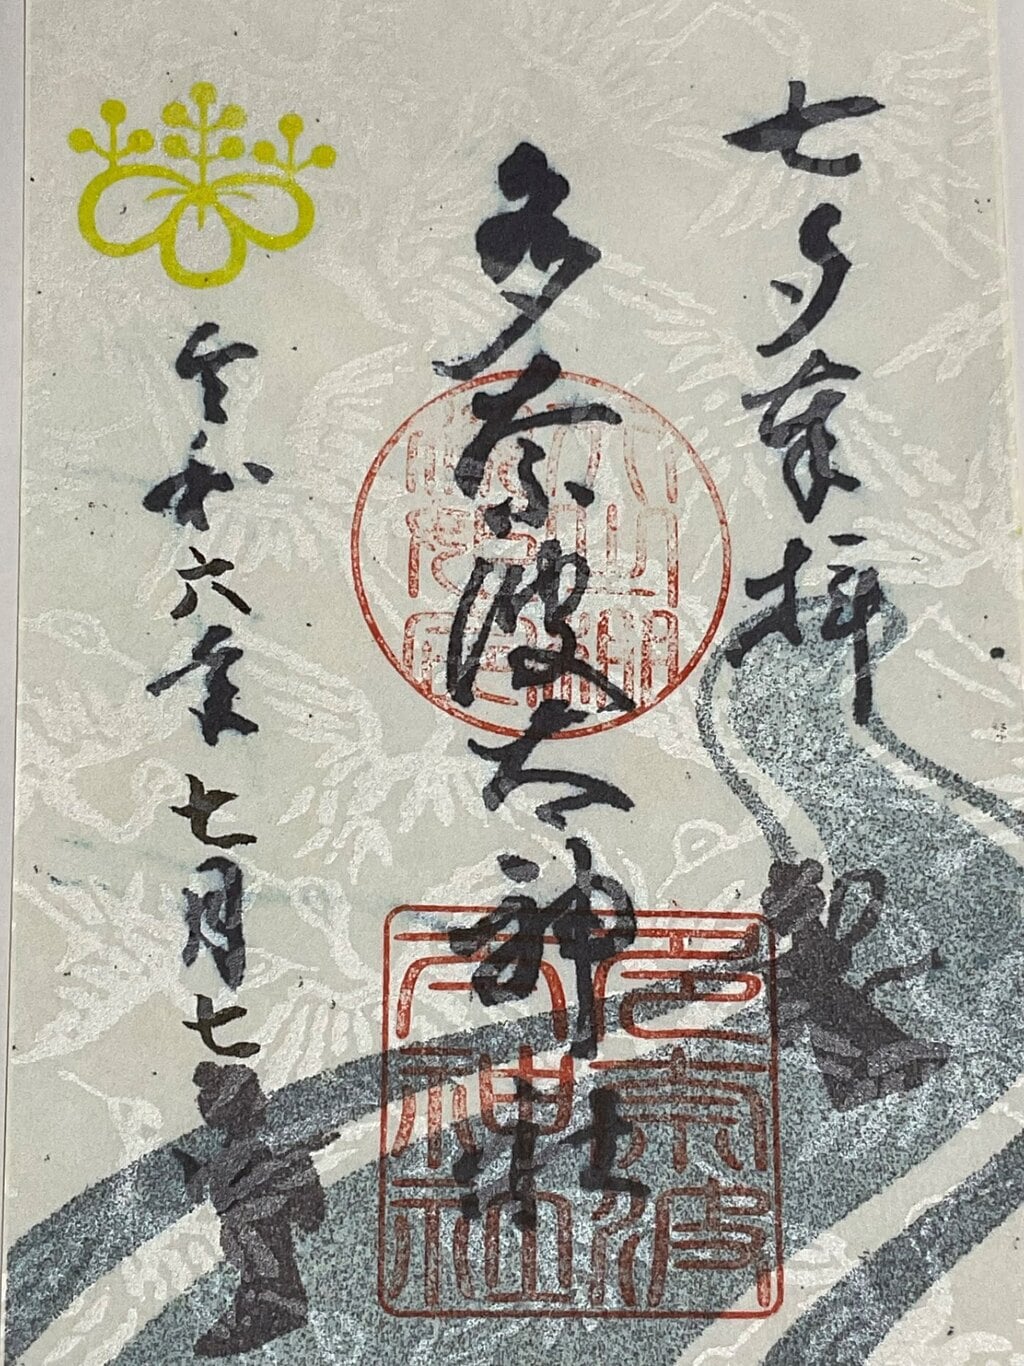 七夕奉拝
多奈波太神社
令和六年七月七日
多奈波
太神社